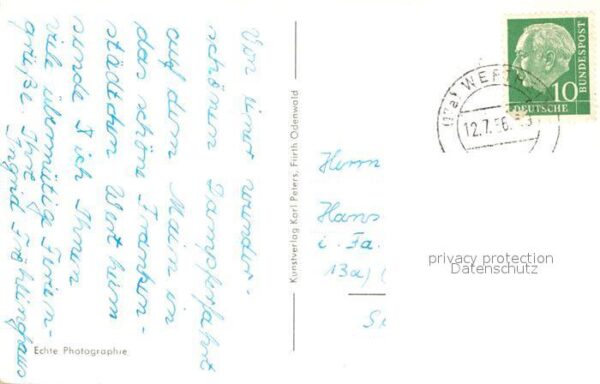 Von einer wunder-
schönen Dampferfahrt
auf dem Main in
das schöne Franken-
städtchen Wertheim
sende ich Ihnen
viele übermütige Ferien-
grüße. Ihre
Ingrid
Echte Photographie
Kunstverlag Karl Peters, Fürth Odenwald
10
DEUTSCHE
BUNDESPOST
(17a) WERTH
12.7.56.
Herrn
Hans
i. Fa.
13a)
privacy protection
Datenschutz